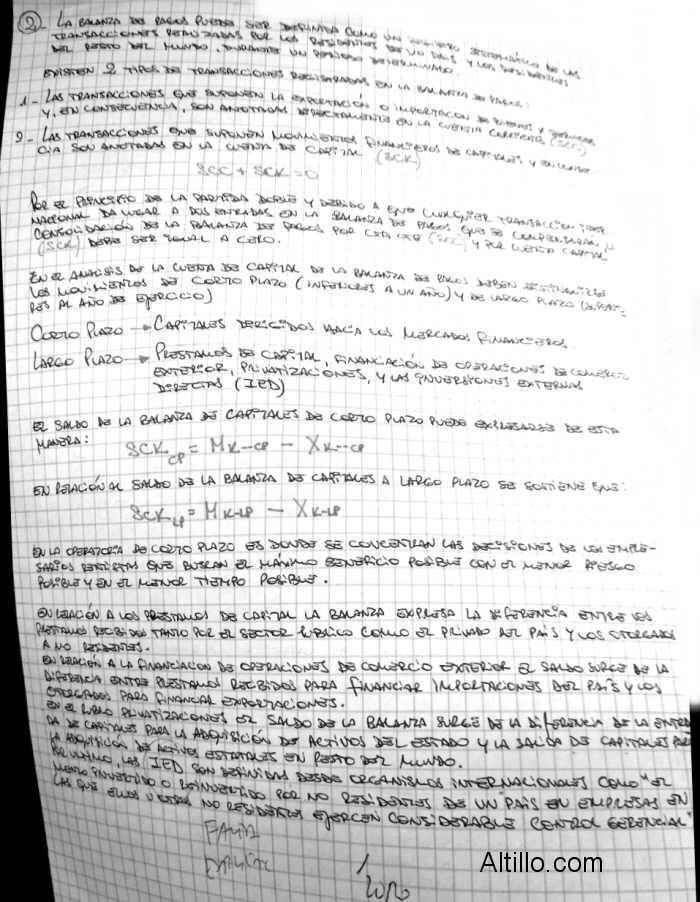 2- LA BALANZA DE PAGOS PUEDE SER DEFINIDA COMO UN REGISTRO SISTEMÁTICO DE LAS
TRANSACCIONES REALIZADAS POR LOS RESIDENTES DE UN PAÍS Y LOS RESIDENTES
DEL RESTO DEL MUNDO, DURANTE UN PERÍODO DETERMINADO.
EXISTEN 2 TIPOS DE TRANSACCIONES REGISTRADAS EN LA BALANZA DE PAGOS:
1- LAS TRANSACCIONES QUE SUPONEN LA EXPORTACIÓN O IMPORTACION DE BIENES Y SERVICIOS
Y, EN CONSECUENCIA, SON ANOTADAS DIRECTAMENTE EN LA CUENTA CORRIENTE (SCC)
2- LAS TRANSACCIONES QUE SUPONEN MOVIMIENTOS FINANCIEROS DE CAPITALES Y EN
CIA SON ANOTADAS EN LA CUENTA DE CAPITAL (SCK)
SCC + SCK = 0
POR EL PRINCIPIO DE LA PARTIDA DOBLE Y DEBIDO A QUE CUALQUIER TRANSACCION
NACIONAL DA LUGAR A DOS ENTRADAS EN LA BALANZA DE PAGOS QUE SE COMPENSARAN,
CONSOLIDACIÓN DE LA BALANZA DE PAGOS POR (SCC) Y POR CUENTA CAPITAL
(SCK) DEBE SER IGUAL A CERO.
EN EL ANALISIS DE LA CUENTA DE CAPITAL DE LA BALANZA DE PAGOS DEBEN DISTINGUIRSE
LOS MOVIMIENTOS DE CORTO PLAZO (INFERIORES A UN AÑO) Y DE LARGO PLAZO (SUPERIO-
RES AL AÑO DE EJERCICIO)
CORTO PLAZO → CAPITALES DIRIGIDOS HACIA LOS MERCADOS FINANCIEROS.
LARGO PLAZO → PRESTAMOS DE CAPITAL, FINANCIACIÓN DE OPERACIONES DE COMERCIO
EXTERIOR, PRIVATIZACIONES, Y LAS INVERSIONES EXTERNAS
DIRECTAS (IED)
EL SALDO DE LA BALANZA DE CAPITALES DE CORTO PLAZO PUEDE EXPRESARSE DE ESTA
MANERA: SCK CP = MK-CP - XK-CP
EN RELACIÓN AL SALDO DE LA BALANZA DE CAPITALES A LARGO PLAZO SE SOSTIENE QUE:
SCK LP = MK-LP - XK-LP
EN LA OPERATORIA DE CORTO PLAZO ES DONDE SE CONCENTRAN LAS DECISIONES DE LOS EMPRE-
SARIOS RENTISTAS QUE BUSCAN EL MÁXIMO BENEFICIO POSIBLE CON EL MENOR RIESGO
POSIBLE Y EN EL MENOR TIEMPO POSIBLE.
EN RELACIÓN A LOS PRESTAMOS DE CAPITAL LA BALANZA EXPRESA LA DIFERENCIA ENTRE LOS
PRESTAMOS RECIBIDOS TANTO POR EL SECTOR PUBLICO COMO EL PRIVADO DEL PAÍS Y LOS OTORGADOS
A NO RESIDENTES.
EN RELACIÓN A LA FINANCIACION DE OPERACIONES DE COMERCIO EXTERIOR EL SALDO SURGE DE LA
DIFERENCIA ENTRE PRESTAMOS RECIBIDOS PARA FINANCIAR IMPORTACIONES DEL PAÍS Y LOS
OTORGADOS PARA FINANCIAR EXPORTACIONES.
EN EL RUBRO PRIVATIZACIONES EL SALDO DE LA BALANZA SURGE DE LA DIFERENCIA DE LA ENTRA-
DA DE CAPITALES PARA LA ADQUISICIÓN DE ACTIVOS DEL ESTADO Y LA SALIDA DE CAPITALES PARA
LA ADQUISICIÓN DE ACTIVOS ESTATALES EN RESTO DEL MUNDO.
POR ULTIMO, LAS IED SON DEFINIDAS DESDE ORGANISMOS INTERNACIONALES COMO "EL
MONTO INVERTIDO O REINVERTIDO POR NO RESIDENTES DE UN PAÍS EN EMPRESAS EN
LAS QUE ELLOS U OTROS NO RESIDENTES EJERCEN CONSIDERABLE CONTROL GERENCIAL"
Altillo.com